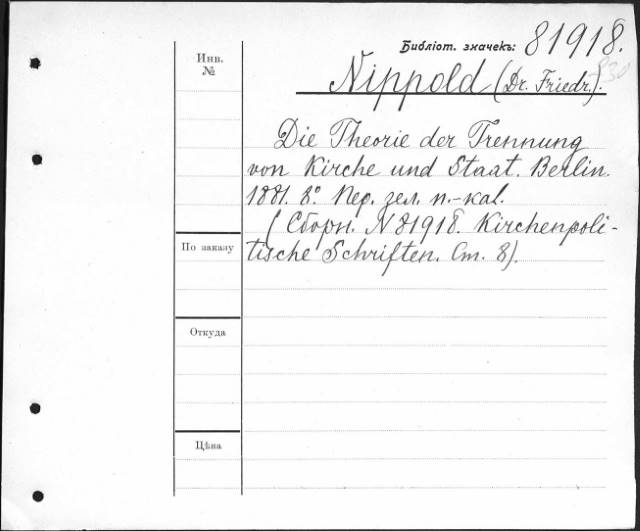 Библіот. значекъ: 81918.
Инв.
№
Nippold (Dr. Friedr.).
Die Theorie der Trennung
von Kirche und Staat. Berlin.
1881. 8°. Пер. зел. п.-кал.
(Сборн. N 81918. Kirchenpoli-
По заказу
tische Schriften. Ст. 8).
Откуда
Цѣна